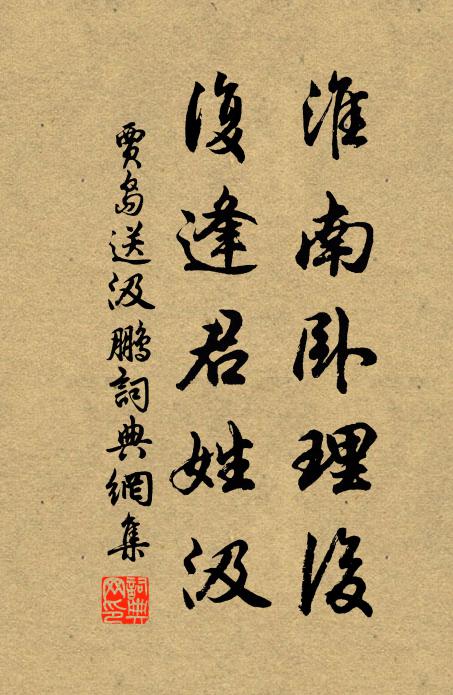 淮南卧理後
復逢君姓汲
賈島送汲鵬詞典網集
詞典网印